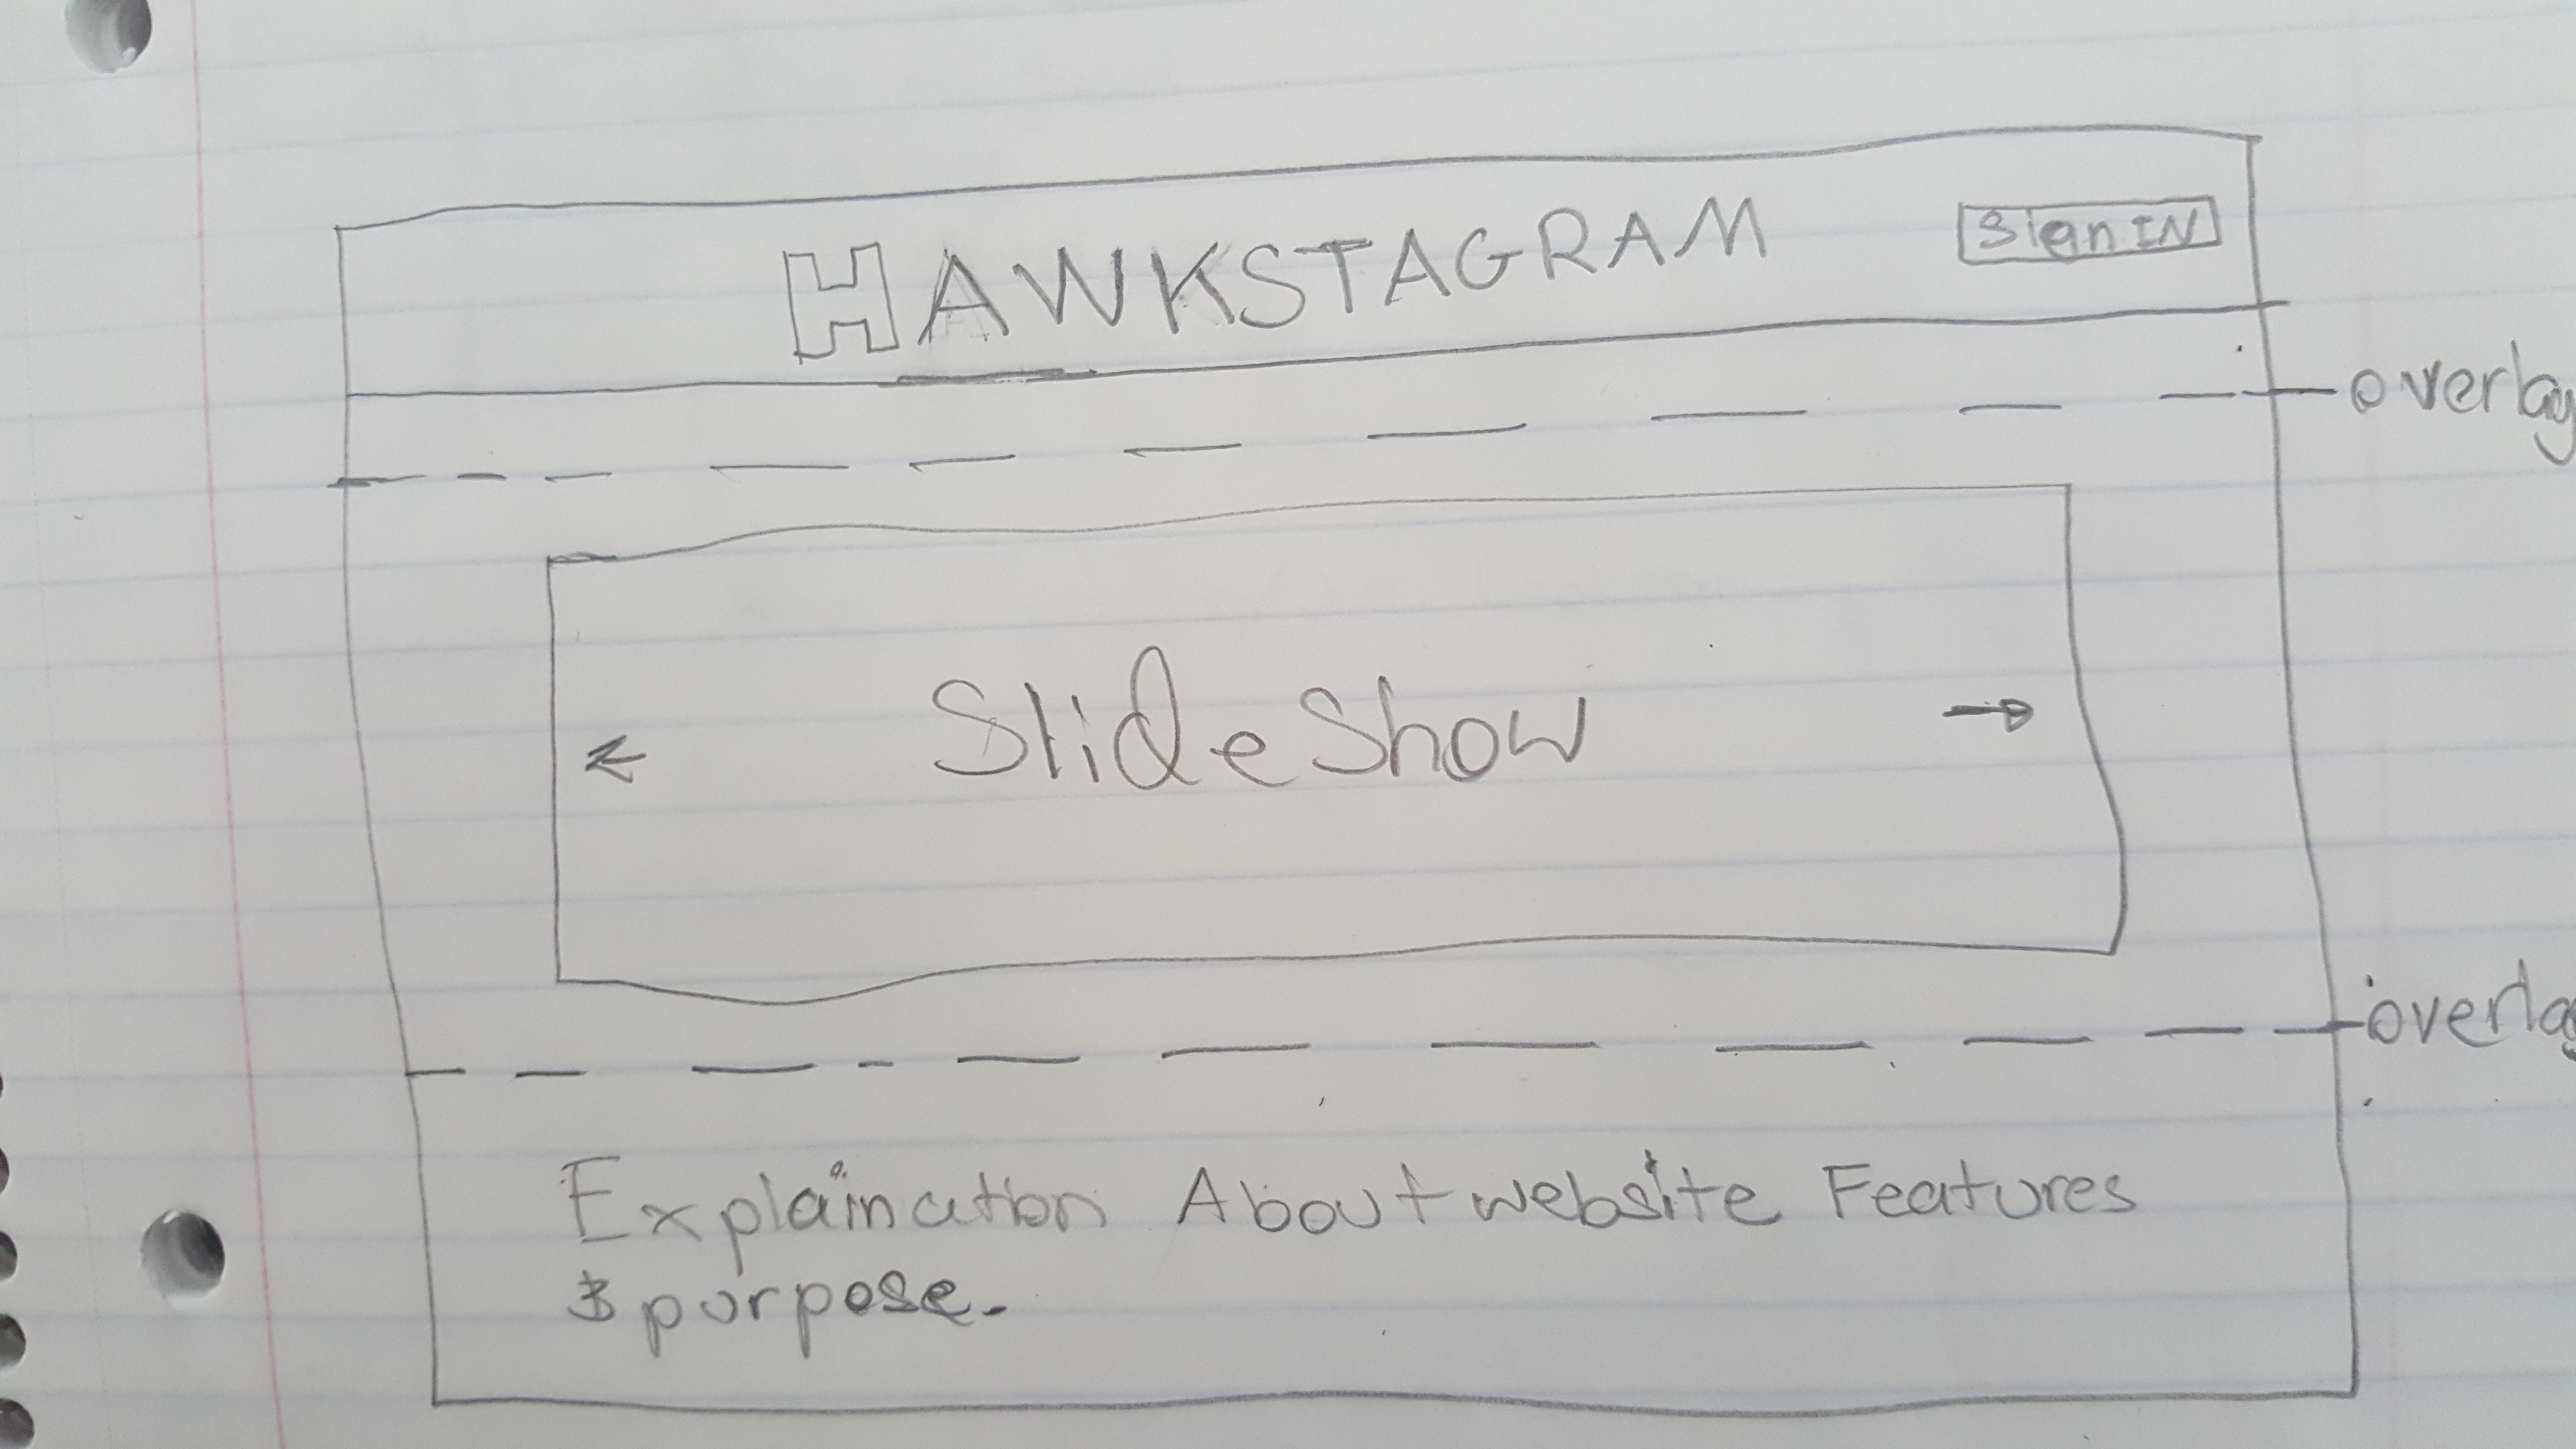 HAWKSTAGRAM
Sign IN
overlay
← SlideShow →
overla
Explaination About website Features
& purpose.